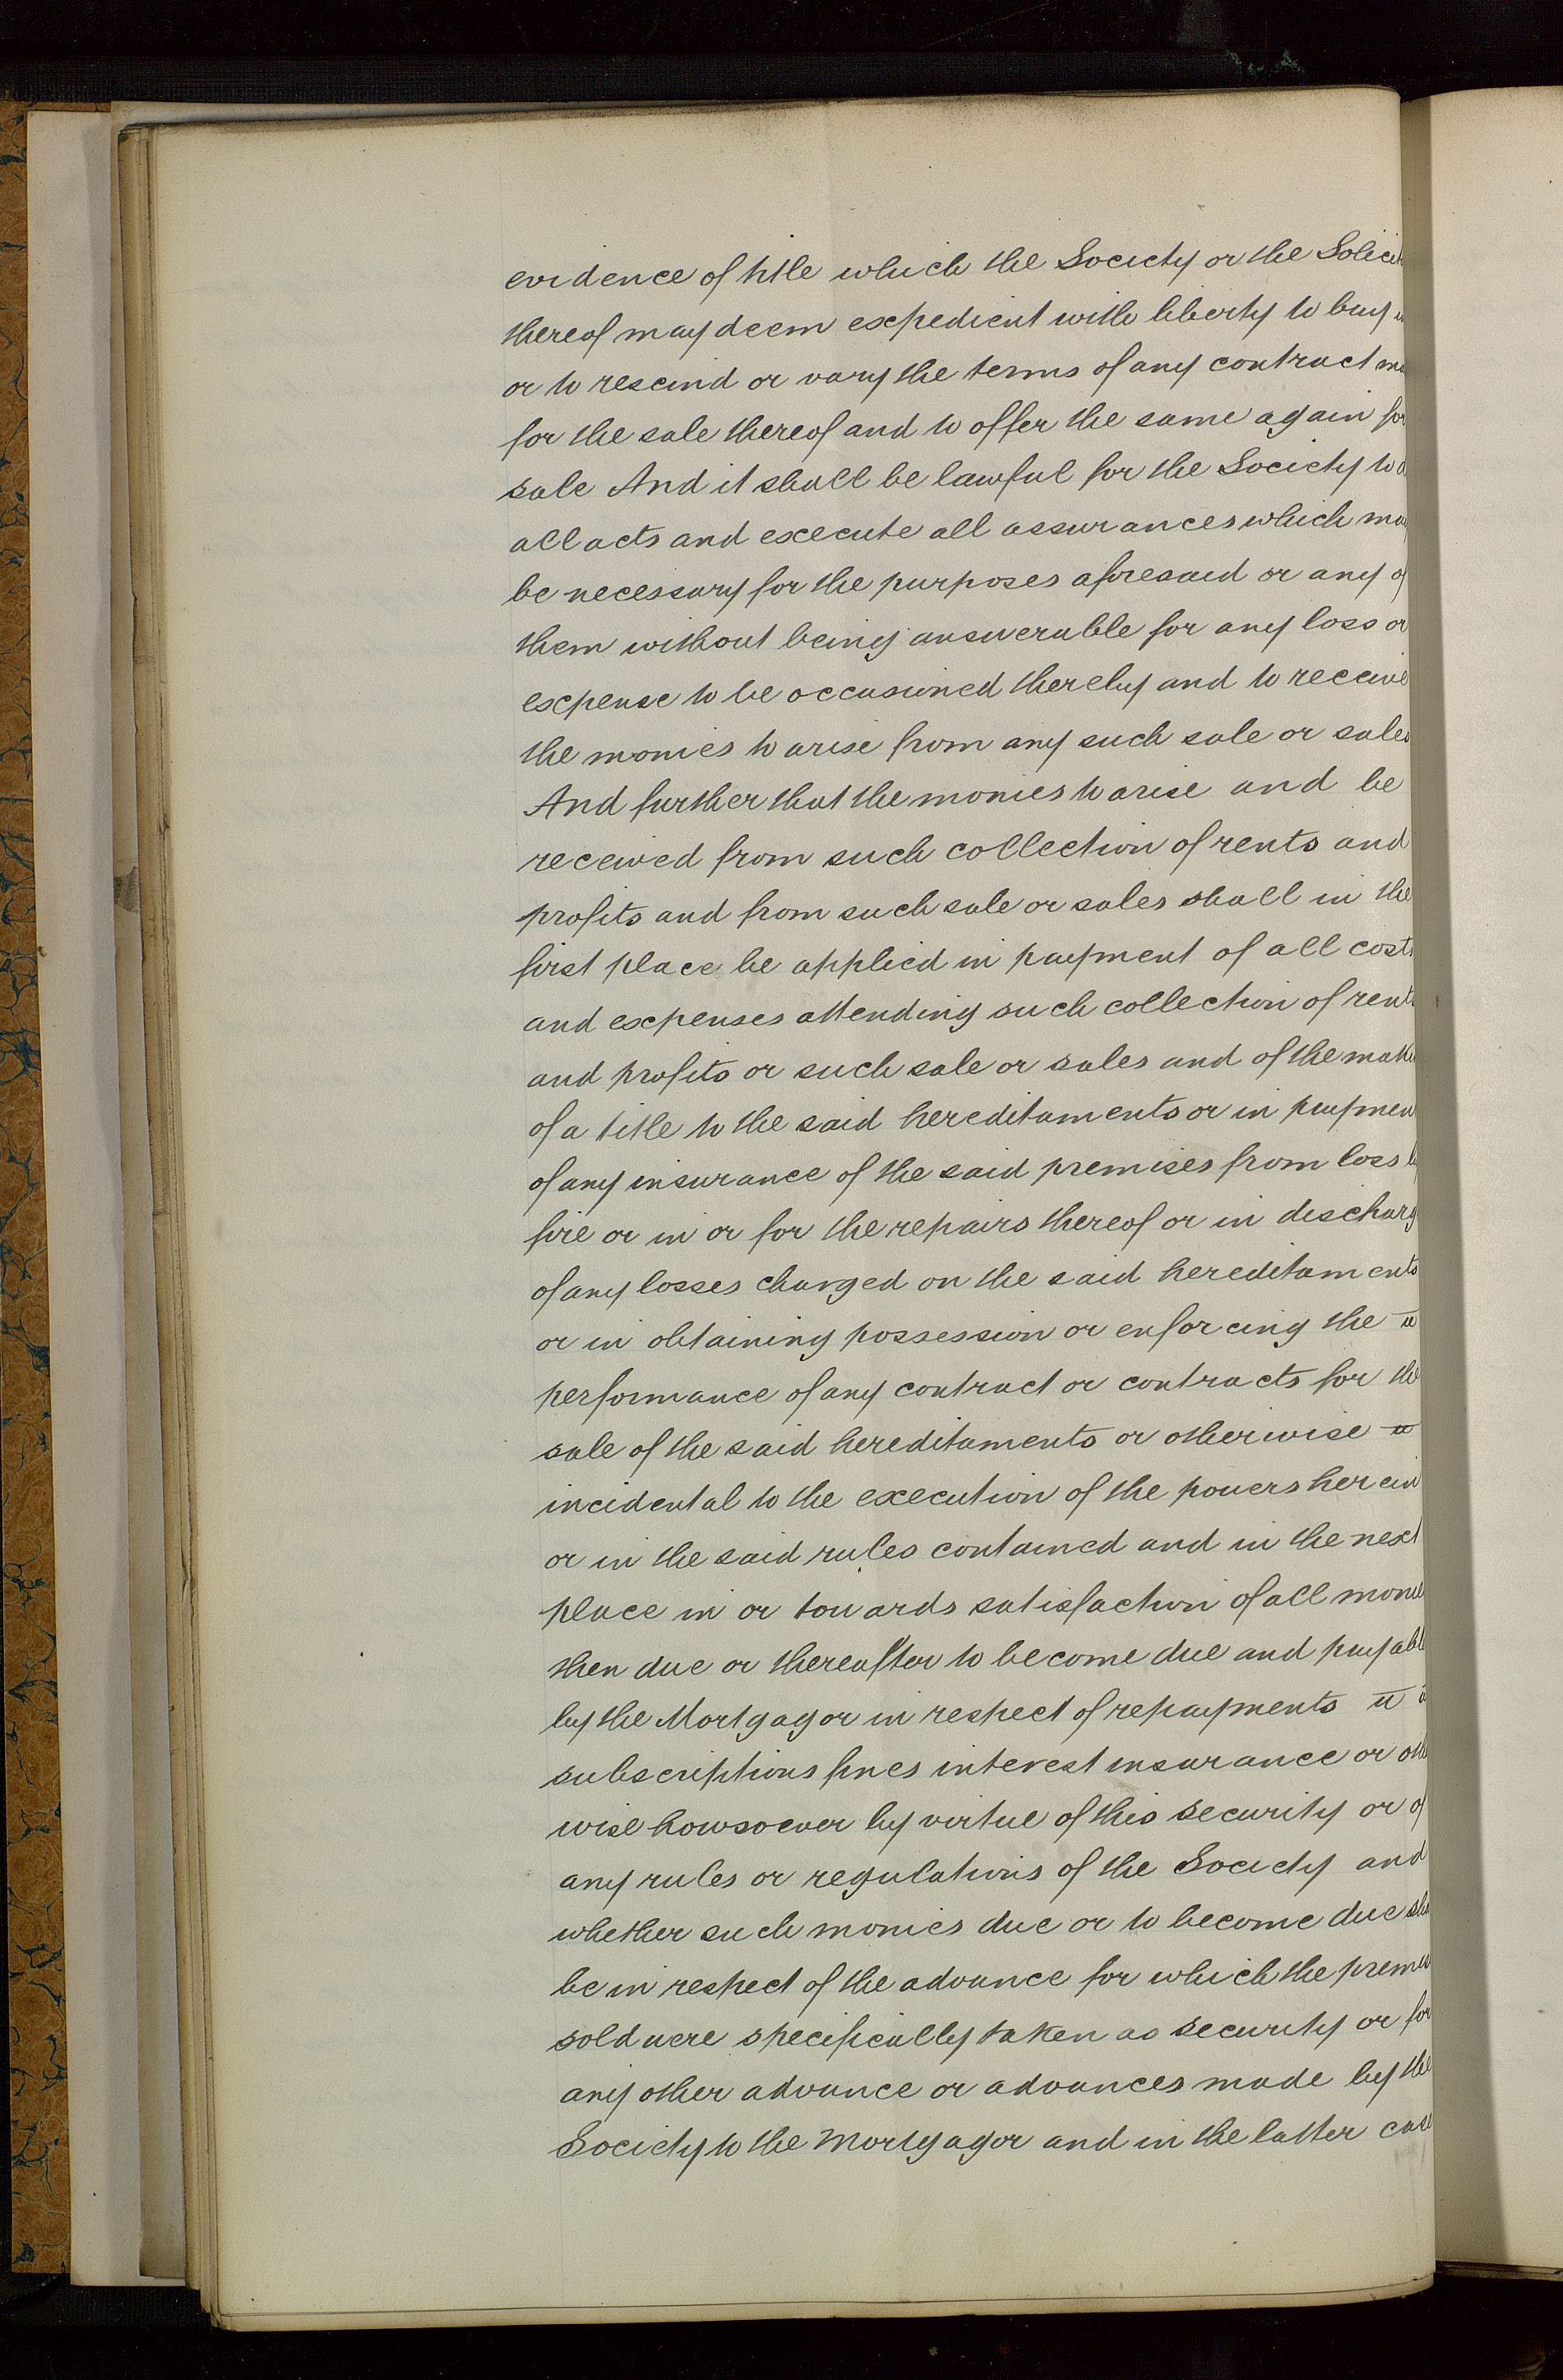 evidence of title which the Society or the Solicit
thereof may deem expedient with liberty to buy
or to rescind or vary the terms of any contract ma
for the sale thereof and to offer the same again for
sale And it shall be lawful for the Society to d
all acts and execute all assurances which may
be necessary for the purposes aforesaid or any of
them without being answerable for any loss or
expense to be occasioned thereby and to receive
the monies to arise from any such sale or sales
And further that the monies to arise and be
received from such collection of rents and
profits and from such sale or sales shall in the
first place be applied in payment of all costs
and expenses attending such collection of rents
and profits or such sale or sales and of the makin
of a title to the said hereditaments or in paymen
of any insurance of the said premises from loss by
fire or in or for the repairs thereof or in discharg
of any losses charged on the said hereditaments
or in obtaining possession or enforcing the
performance of any contract or contracts for the
sale of the said hereditaments or otherwise
incidental to the execution of the powers herein
or in the said rules contained and in the next
place in or towards satisfaction of all monie
then due or thereafter to become due and payabl
by the Mortgagor in respect of repayments
subscriptions fines interest insurance or othe
wise howsoever by virtue of this security or of
any rules or regulations of the Society and
whether such monies due or to become due sha
be in respect of the advance for which the premis
sold were specifically taken as security or for
any other advance or advances made by the
Society to the Mortgagor and in the latter case